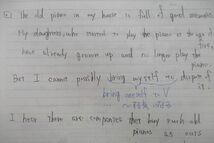 The old piano in my house is full of good memories.
My daughters, who used to play the piano
have already grown up and no longer play the
piano.
But I cannot possibly bring myself to dispose of
it.
bring oneself to V
I hear there are companies that buy such old
pianos as ours